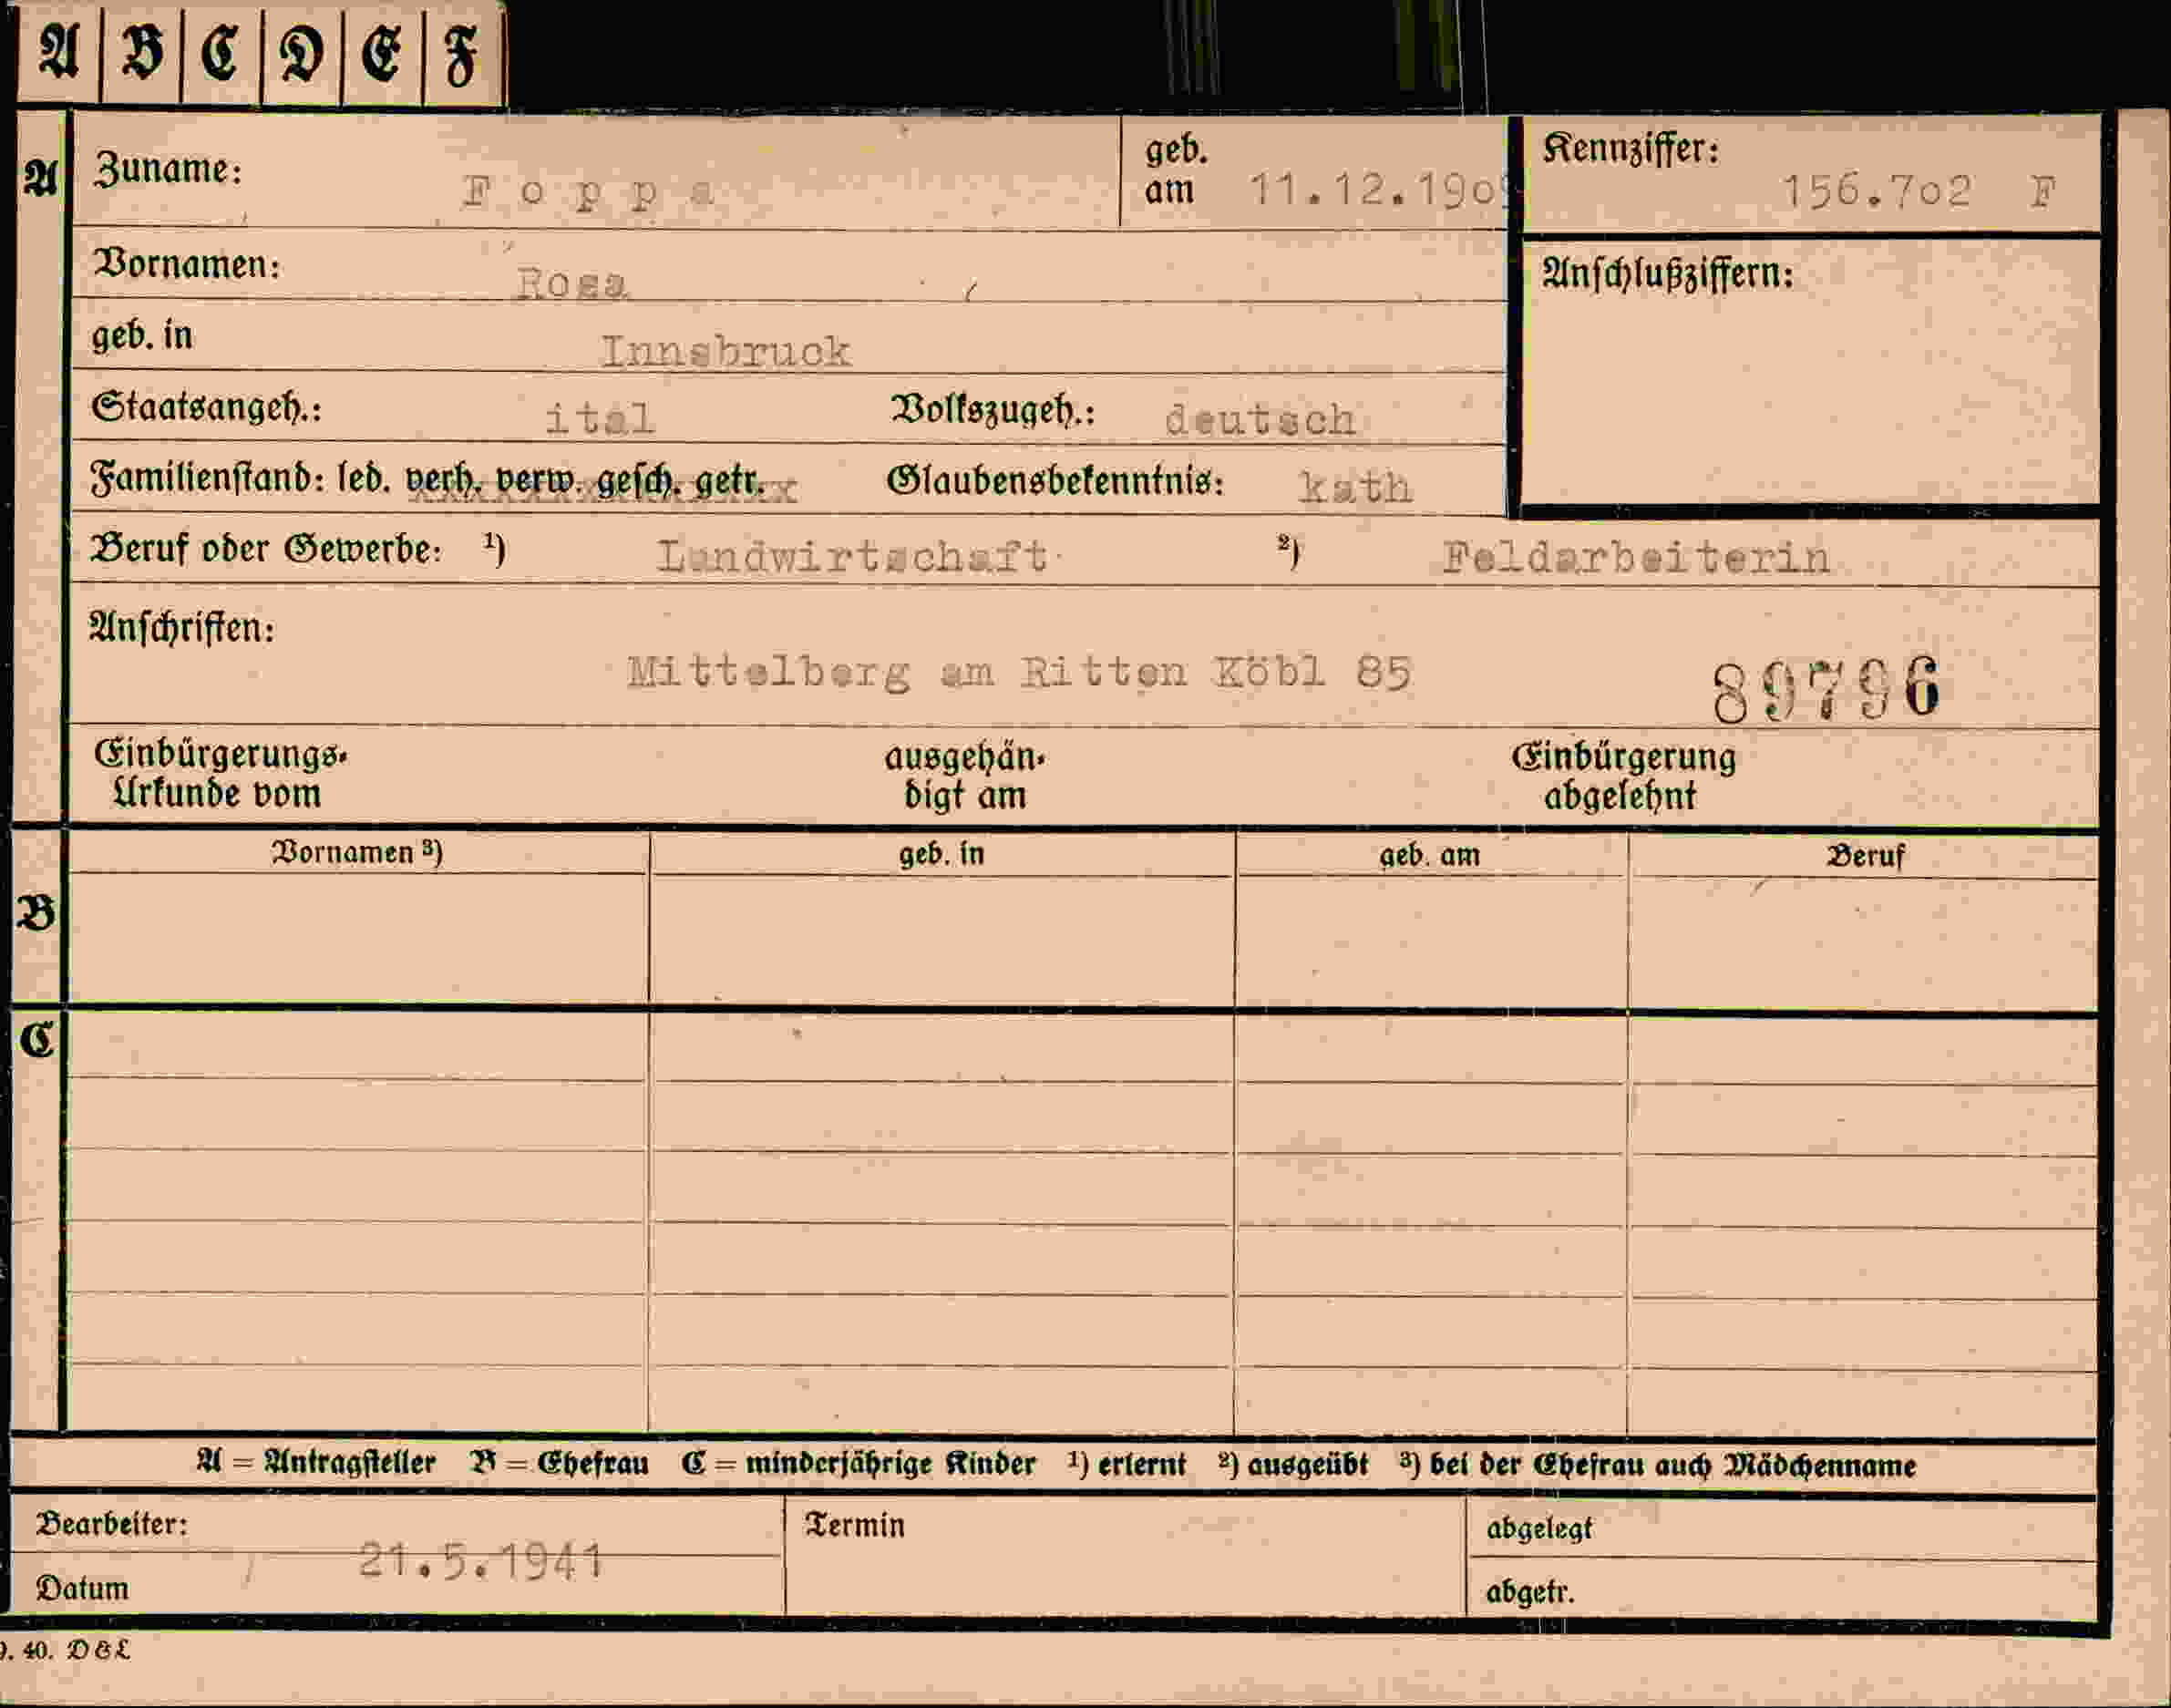 A B C D E F
A Zuname: Foppa geb. am 11.12.1909 Kennziffer: 156.702 F
Vornamen: Rosa Anschlußziffern:
geb. in Innsbruck
Staatsangeh.: ital Volkszugeh.: deutsch
Familienstand: led. verh. verw. gesch. getr. Glaubensbekenntnis: kath
Beruf oder Gewerbe: ¹) Landwirtschaft ²) Feldarbeiterin
Anschriften:
Mittelberg am Ritten Köbl 85 89796
Einbürgerungs- ausgehän- Einbürgerung
Urkunde vom digt am abgelehnt
Vornamen ³) geb. in geb. am Beruf
B
C
A = Antragsteller B = Ehefrau C = minderjährige Kinder ¹) erlernt ²) ausgeübt ³) bei der Ehefrau auch Mädchenname
Bearbeiter: Termin abgelegt
21.5.1941
Datum abgetr.
9. 40. D&L